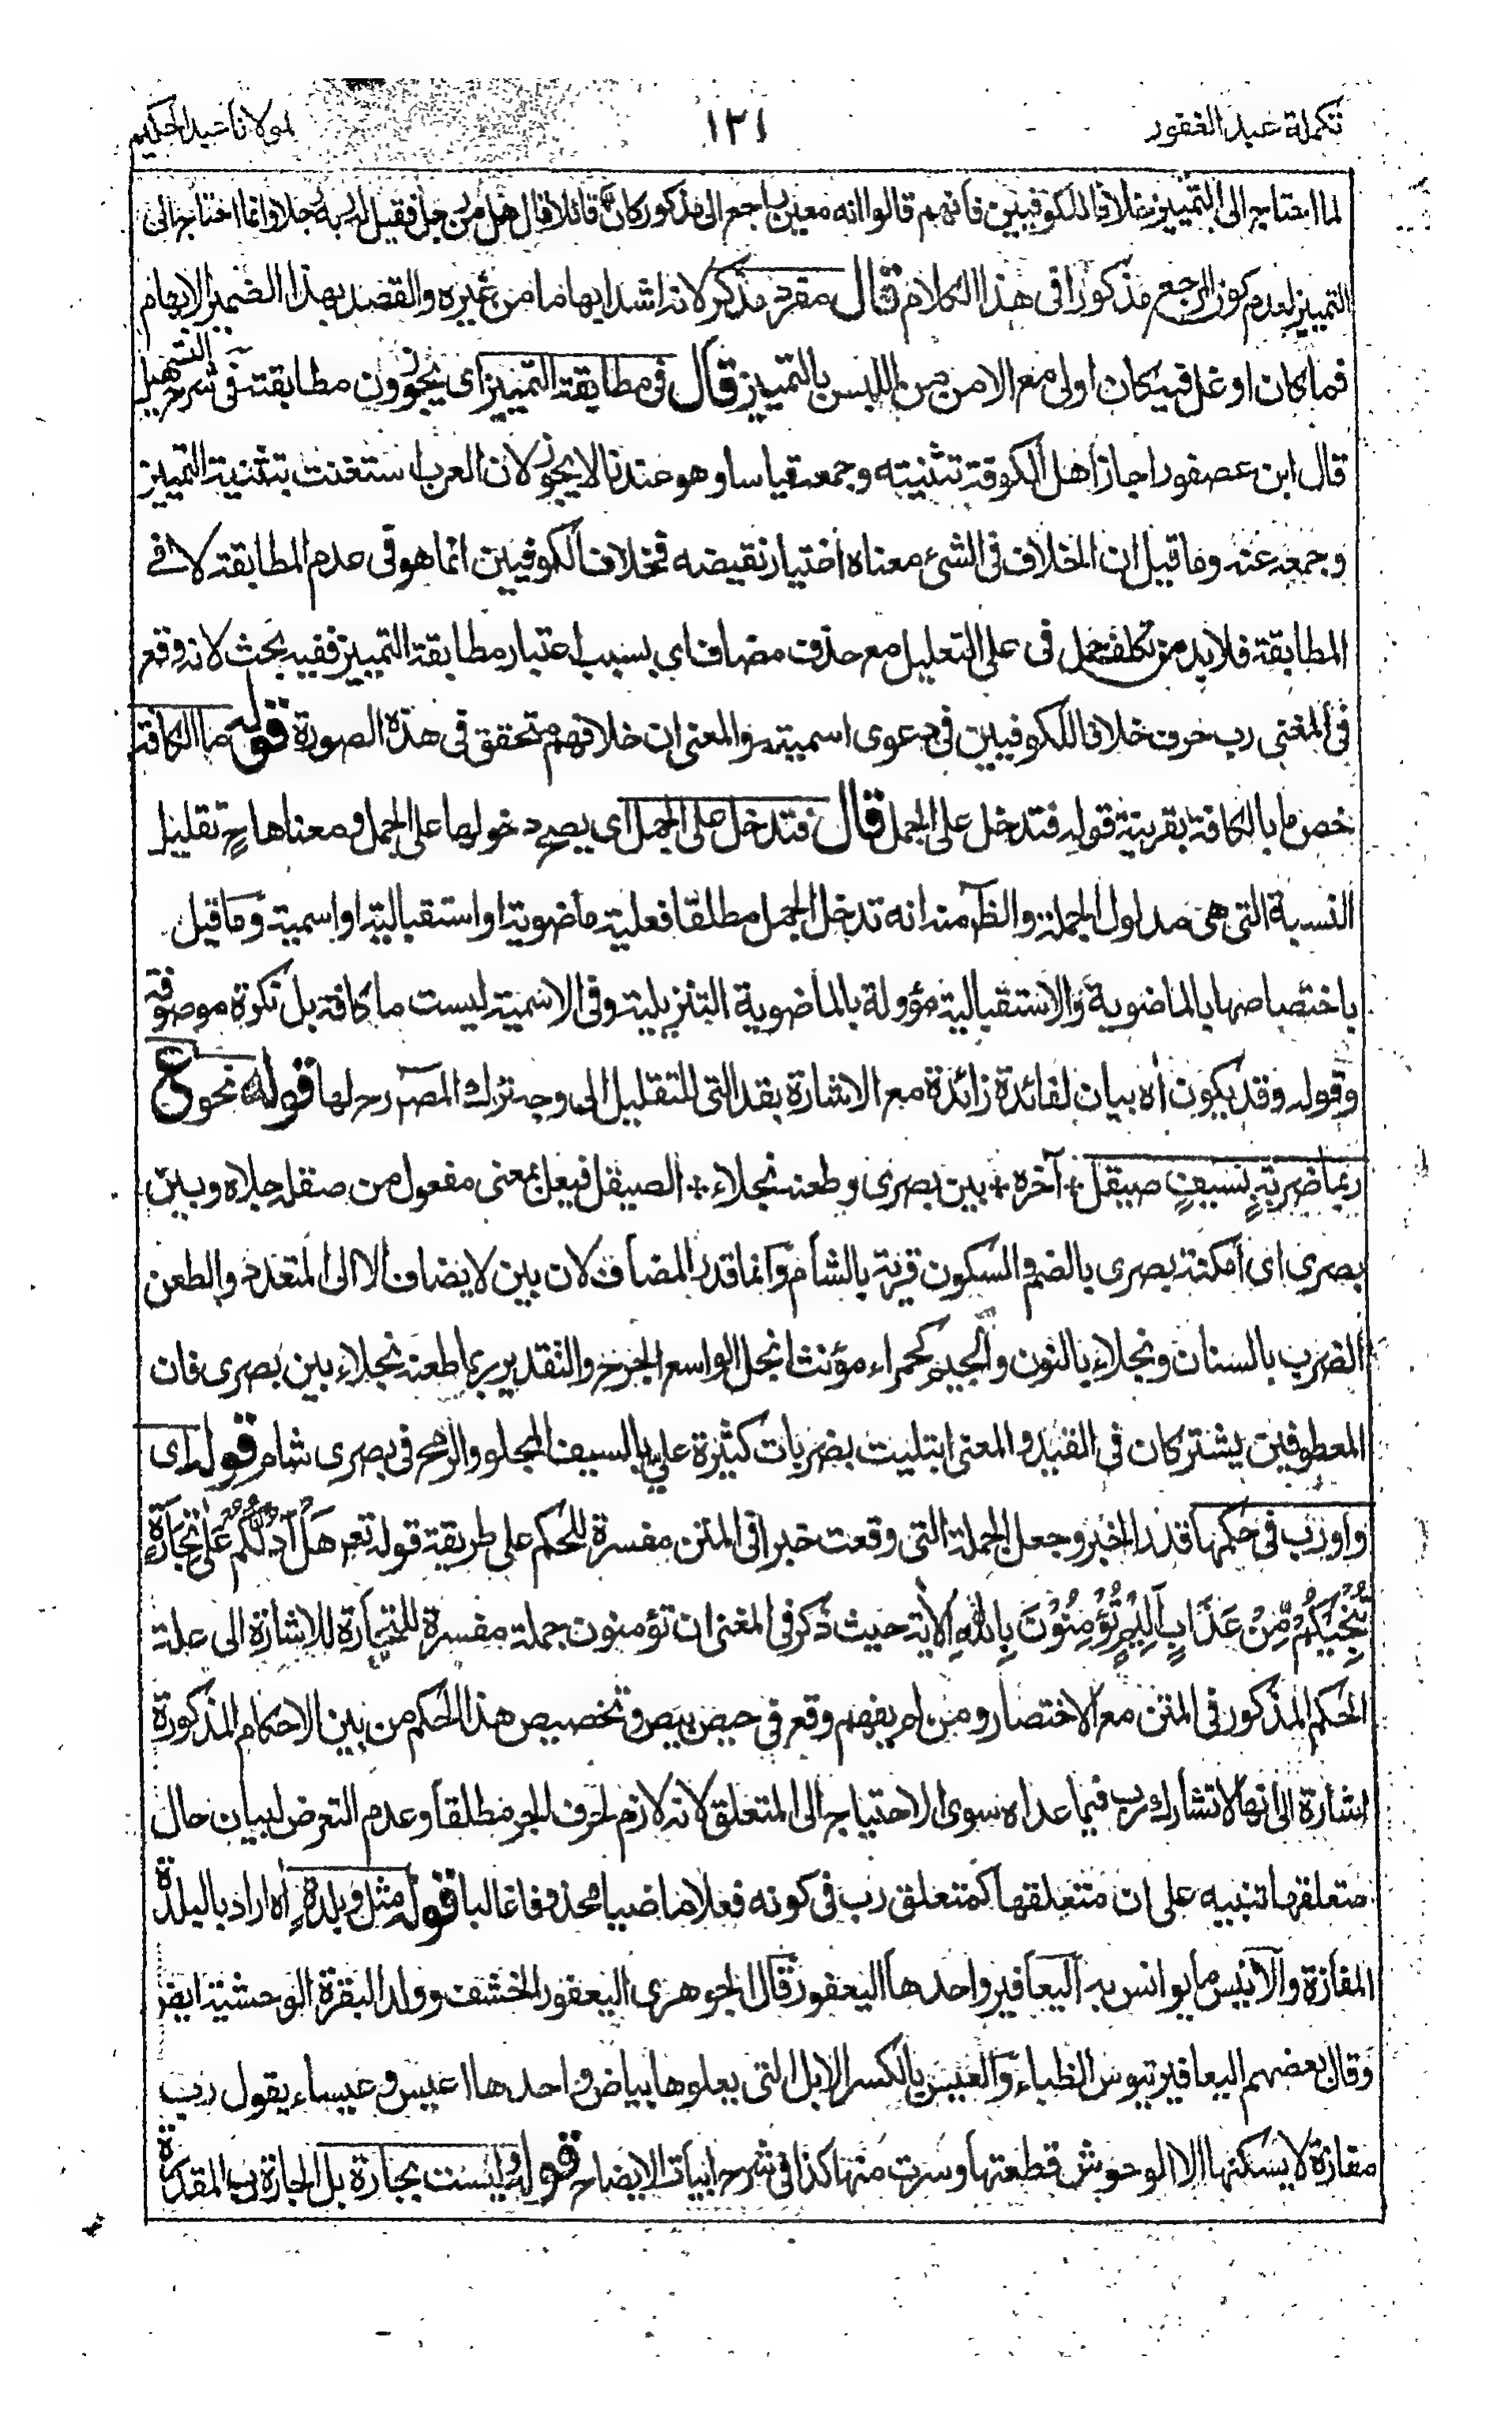 تكملة عبد الغفور ١٢١ لمولانا عبد الحكيم
لما احتاج الى التمييز خلافا للكوفيين فانهم قالوا انه معين راجع الى مذكور كان قائلا قال هل من رجل فقيل له ربه رجلا وانما احتاج الى
التمييز لعدم كون المرجع مذكورا فى هذا الكلام قال مفرد مذكر لانه اشد ابهاما من غيره والقصد بهذا الضمير الابهام
فما كان اوغل فيه كان اولى مع الامن من اللبس بالتمييز قال فى مطابقة التمييز اى يجوزون مطابقته فى شرح التسهيل
قال ابن عصفور اجاز اهل الكوفة تثنيته وجمعه قياسا وهو عندنا لا يجوز لان العرب استغنت بتثنية التمييز
وجمعه عنه وما قيل ان الخلاف فى الشئ معناه اختيار نقيضه فخلاف الكوفيين انما هو فى عدم المطابقة لا فى
المطابقة فلابد من تكلف حمل فى على التعليل مع حذف مضاف اى بسبب اعتبار مطابقة التمييز ففيه بحث لانه وقع
فى المغنى رب حرف خلافا للكوفيين فى دعوى اسميته والمعنى ان خلافهم متحقق فى هذه الصورة قوله ما الكافة
خص ما بالكافة بقرينة قوله فتدخل على الجمل قال فتدخل على الجمل اى يصح دخولها على الجمل ومعناها ح تقليل
النسبة التى هى مدلول الجملة والظ منه انه تدخل الجمل مطلقا فعلية ماضوية او استقبالية او اسمية وما قيل
باختصاصها بالماضوية والاستقبالية مؤولة بالماضوية التنزيلية وفى الاسمية ليست ما كافة بل نكرة موصوفة
وقوله وقد يكون اه بيان لفائدة زائدة مع الاشارة بقد التى للتقليل الى وجه ترك المص رح لها قوله نحو ع
ربما ضربةٍ بسيفٍ صيقل * آخره * بين بصرى وطعنه نجلاء * الصيقل فيعل بمعنى مفعول من صقله جلاه وبين
بصرى اى امكنة بصرى بالضم والسكون قرية بالشام وانما قدر المضاف لان بين لا يضاف الا الى المتعدد والطعن
الضرب بالسنان ونجلاء بالنون والجيم كحمراء مؤنث انجل الواسع الجرح والتقدير ربما طعنة نجلاء بين بصرى فان
المعطوفين يشتركان فى القيد والمعنى ابتليت بضربات كثيرة على بالسيف المجلو والرمح فى بصرى شام قوله اى
واو رب فى حكمها قدر الخبر وجعل الجملة التى وقعت خبرا فى المتن مفسرة للحكم على طريقة قوله تعم هَلْ اَدُلُّكُمْ عَلٰى تِجَارَةٍ
تُنْجِيْكُمْ مِّنْ عَذَابٍ اَلِيْمٍ تُؤْمِنُوْنَ بِاللّٰهِ الاٰية حيث ذكر فى المغنى ان تؤمنون جملة مفسرة للتجارة للاشارة الى علة
الحكم المذكور فى المتن مع الاختصار ومن لم يفهم وقع فى حيص بيص وتخصيص هذا الحكم من بين الاحكام المذكورة
اشارة الى انها لا تشارك رب فيما عداه سوى الاحتياج الى المتعلق لانه لازم لحرف الجر مطلقا وعدم التعرض لبيان حال
متعلقها تنبيه على ان متعلقها كمتعلق رب فى كونه فعلا ماضيا محذوفا غالبا قوله مثل وبلدةٍ اه اراد بالبلدة
المفازة والانيس ما يوانس به اليعافير واحدها اليعفور قال الجوهرى اليعفور الخشف وولد البقرة الوحشية ايض
وقال بعضهم اليعافير تيوس الظباء والعيس بالكسر الابل التى يعلوها بياض واحدها اعيس وعيساء يقول رب
مفازة لا يسكنها الا الوحوش قطعتها وسرت منها كذا فى شرح ابيات الايضاح قوله ليست بجارة بل الجارة رب المقدرة